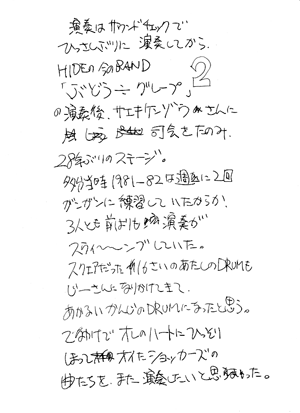 演奏はサウンドチェックで
ひっさしぶりに演奏してから、
HIDEの今のBAND
「ぶどう÷グループ」2
の演奏後、サエキケンゾウさんに
司会をたのみ、
28年ぶりのステージ。
多分当時1981-82は週に2回
ガンガンに練習していたからか、
3人とも前よりも演奏が
スウィ〜〜ングしていた。
スクエアだった 才のあたしのDRUMも
じーさんになりかけてきて、
あかるいかんじのDRUMになったと思う。
でなわけでオレのハートにひっそり
しまっておいたショッカーズの
曲たちを、また演奏したいと思った。